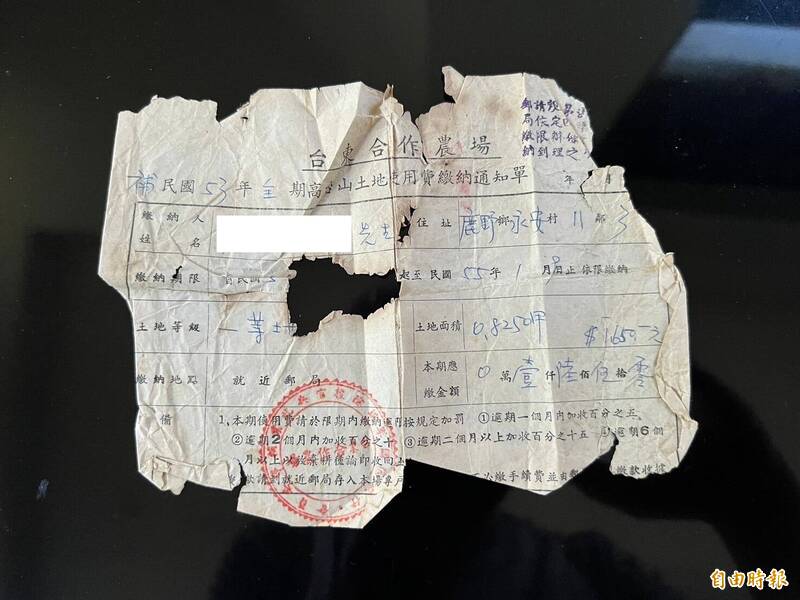 郵請毀
局依定
繳限辦
納到理之
台東合作農場
補民國53年全期高 山土地使用費繳納通知單 年 月
繳納人姓名 先生 住址 鹿野鄉永安村11鄰
繳納期限 自民國5 起至民國55年1月 日止依限繳納
土地等級 一等 土地面積 0.8250甲 $1650元
繳納地點 就近郵局 本期應繳金額 0萬壹仟陸佰伍拾零
備 1.本期使用費請於限期內繳納逾 按規定加罰 ①逾期一個月內加收百分之五
②逾期2個月內加收百分之十 ③逾期二個月以上加收百分之十五 ④逾期6個
月以上以放棄耕種論即收回土
請到就近郵局存入本場專戶 必繳手續費並由郵 繳款收據
自由時報